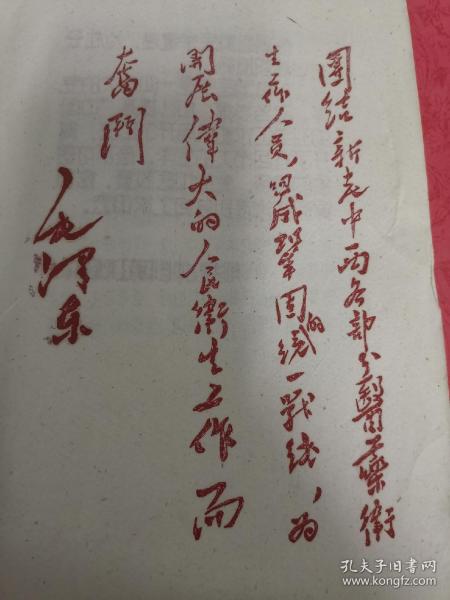 團結新老中西各部分醫藥衛
生工作人員，組成鞏固的統一戰綫，為
開展偉大的人民衛生工作而
奮鬥
毛澤东
孔夫子旧书网
www.kongfz.com